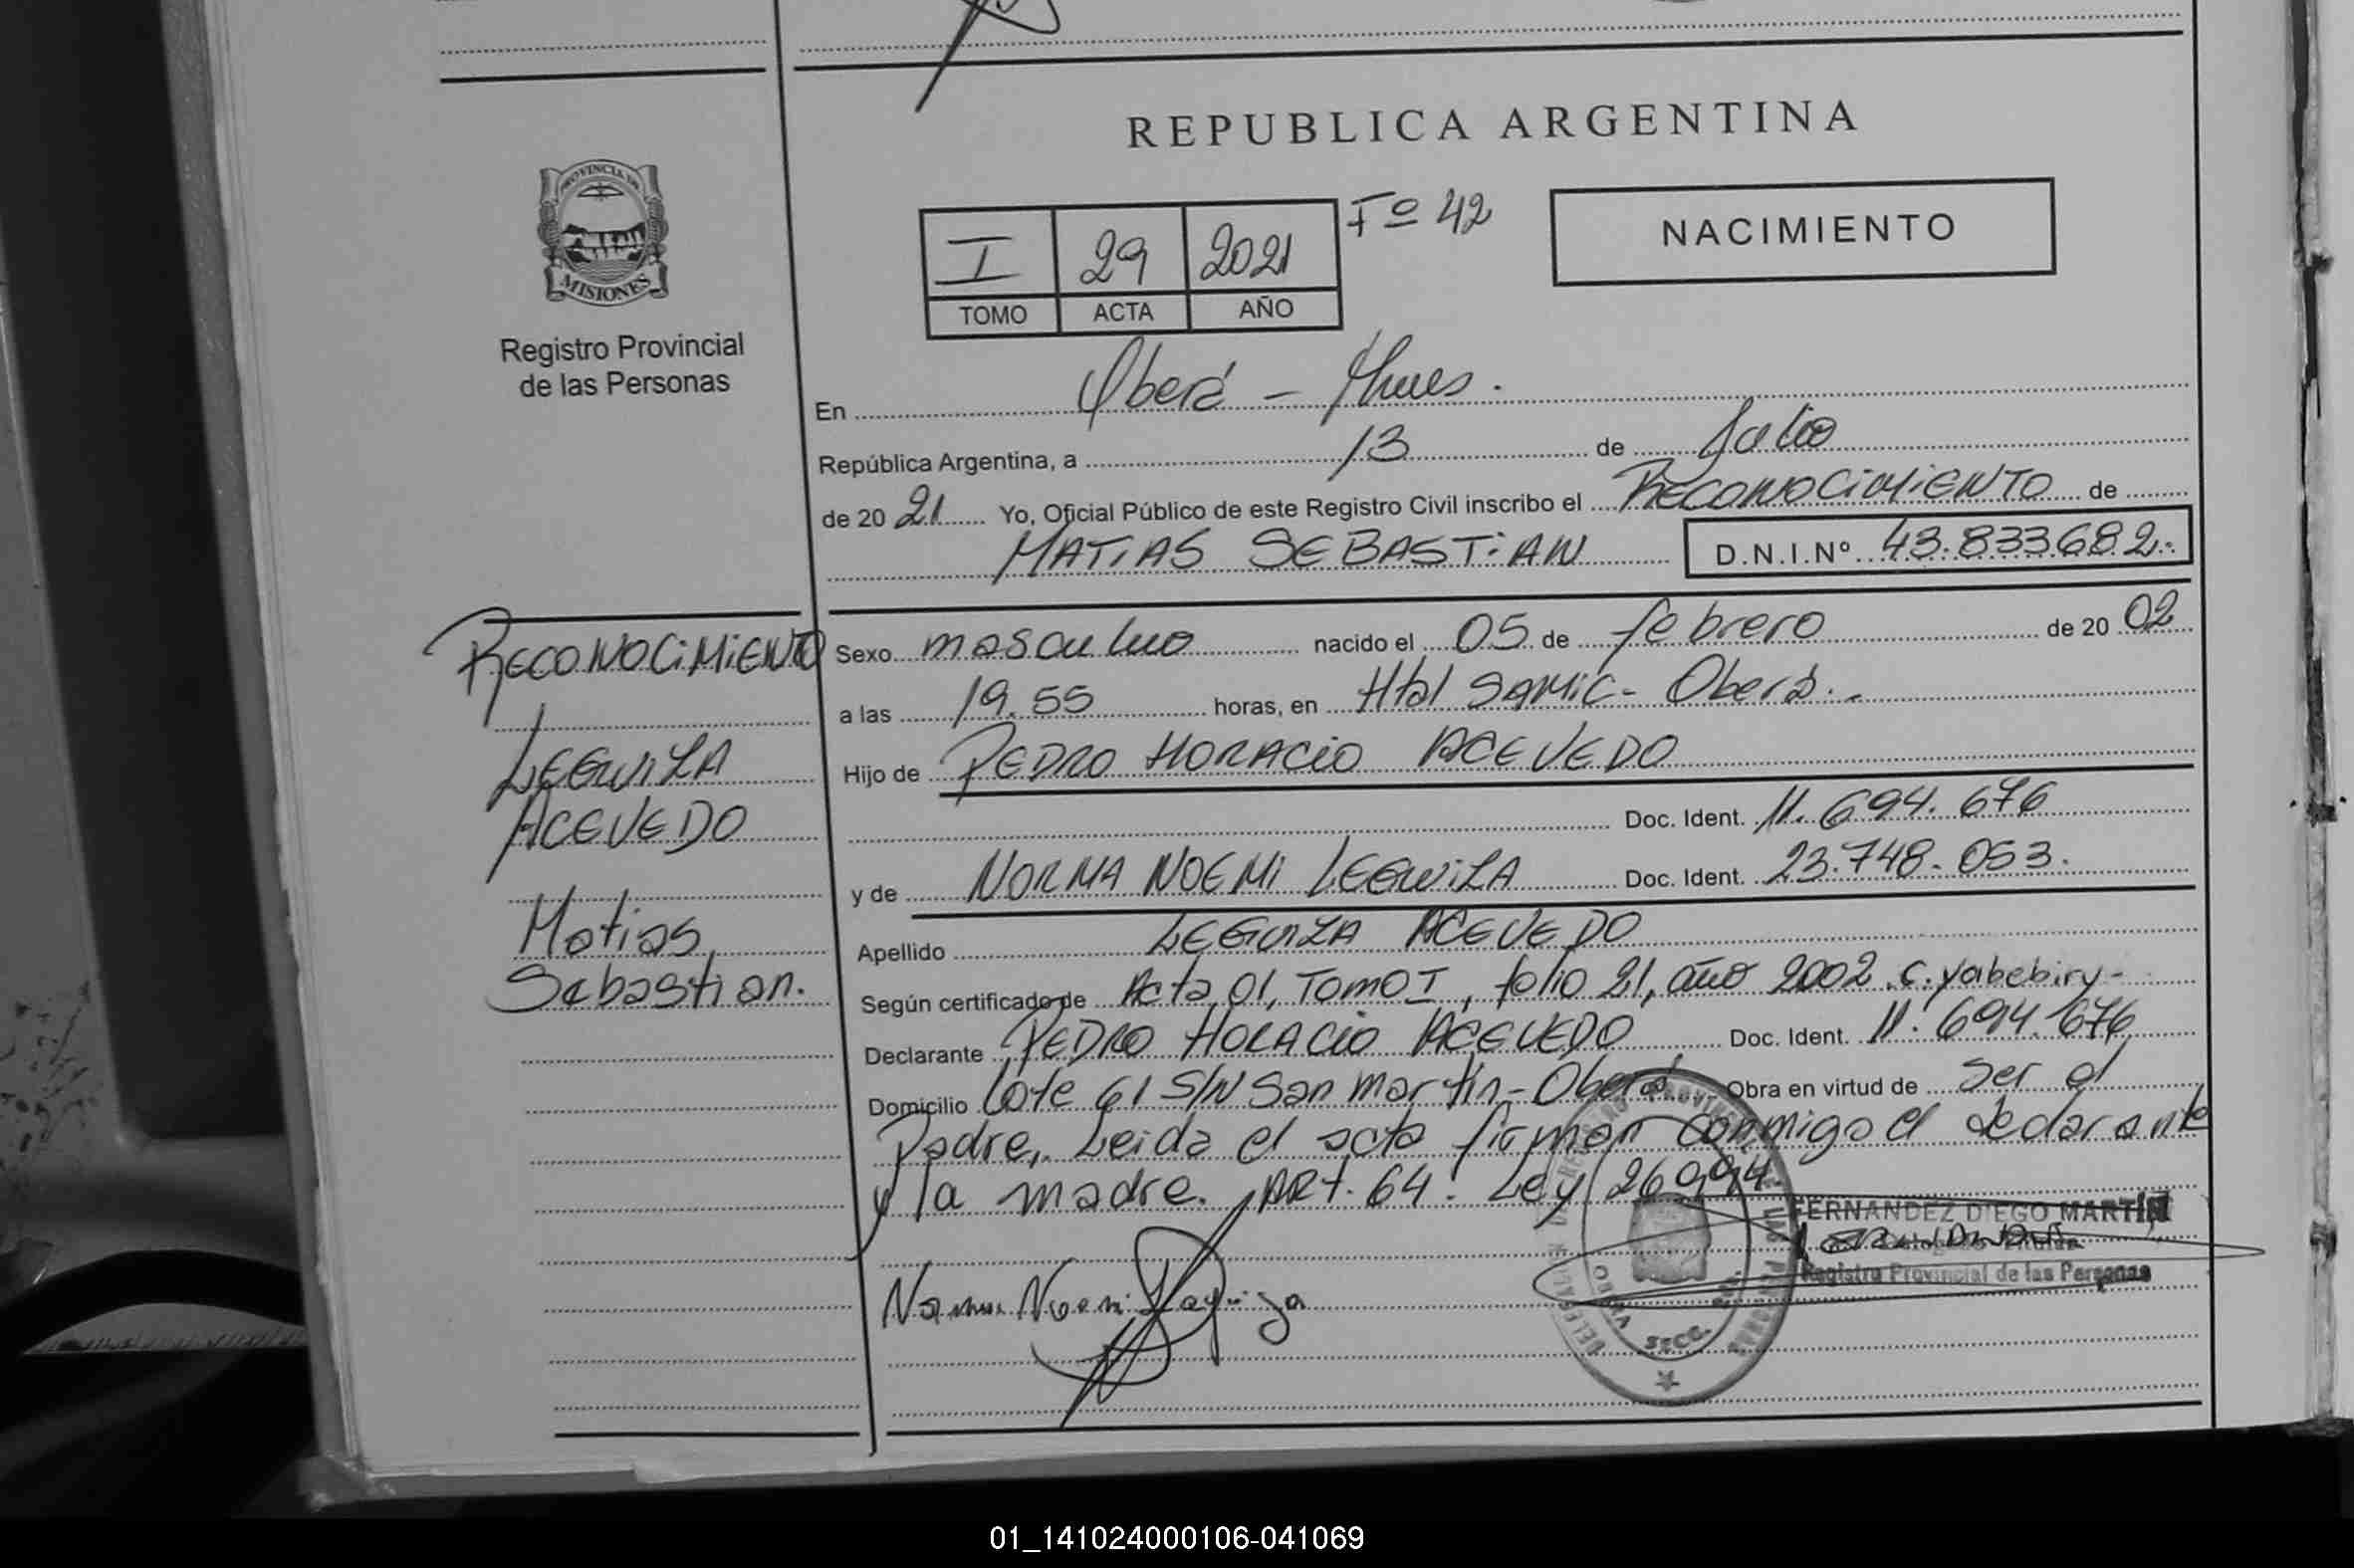 REPUBLICA ARGENTINA
PROVINCIA DE
MISIONES
Registro Provincial
de las Personas
I 29 2021 Fº 42
TOMO ACTA AÑO
NACIMIENTO
En Oberá - Mnes.
República Argentina, a 13 de Julio
de 20 21 Yo, Oficial Público de este Registro Civil inscribo el RECONOCIMIENTO de
MATIAS SEBASTIAN D.N.I.Nº 43.833.682.-
RECONOCIMIENTO
LEGUIZA
ACEVEDO
Matias
Sebastian.
Sexo masculino nacido el 05 de febrero de 20 02
a las 19.55 horas, en Htal SAMIC - Oberá.-
Hijo de PEDRO HORACIO ACEVEDO
Doc. Ident. 11.694.676
y de NORMA NOEMI LEGUIZA Doc. Ident. 23.748.053.
Apellido LEGUIZA ACEVEDO
Según certificado de Acta 01, TOMO I, folio 21, año 2002 C. Yabebiry-
Declarante PEDRO HORACIO ACEVEDO Doc. Ident. 11.694.676
Domicilio Lote 61 S/N San Martin - Oberá Obra en virtud de ser el
Padre, Leida el acta firman conmigo el declarante
y la madre. ART. 64. Ley 26994
FERNANDEZ DIEGO MARTIN
Registro Provincial de las Personas
Norma Noemi Leguiza
SECC.
01_141024000106-041069